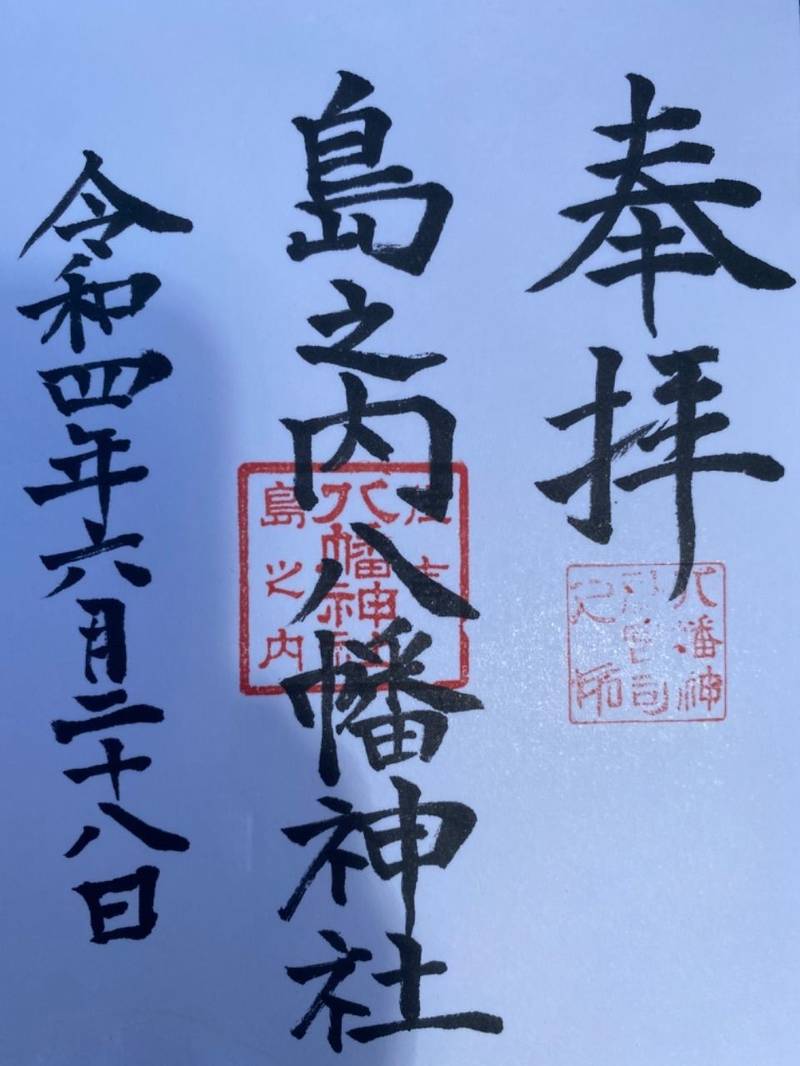 奉拝
八幡神
島之内八幡神社
八幡神
島之内
令和四年六月二十八日